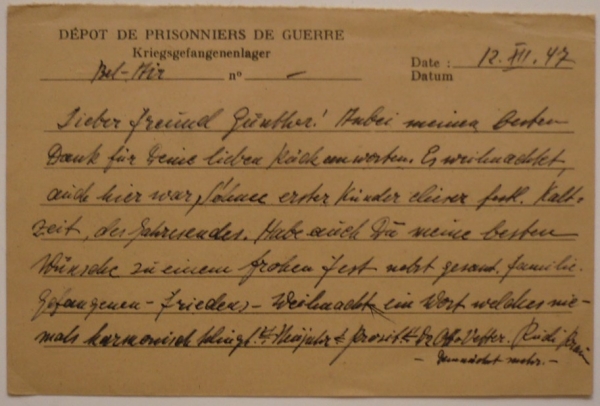 DÉPOT DE PRISONNIERS DE GUERRE
Kriegsgefangenenlager
Bel-Air nº –
Date : 12. XII. 47
Datum
Lieber Freund Günther! Anbei meinen besten
Dank für Deine lieben Rückantworten. Es weihnachtet,
auch hier war Schnee erster Künder dieser festl. Kalt-
zeit, des Jahresendes. Habe auch Du meine besten
Wünsche zu einem frohen Fest nebst gesamt. Familie.
Gefangenen – Friedens – Weihnacht ein Wort welches nie-
mals harmonisch klingt. Neujahr Prosit Otto Vetter. Rudi
– demnächst mehr. –